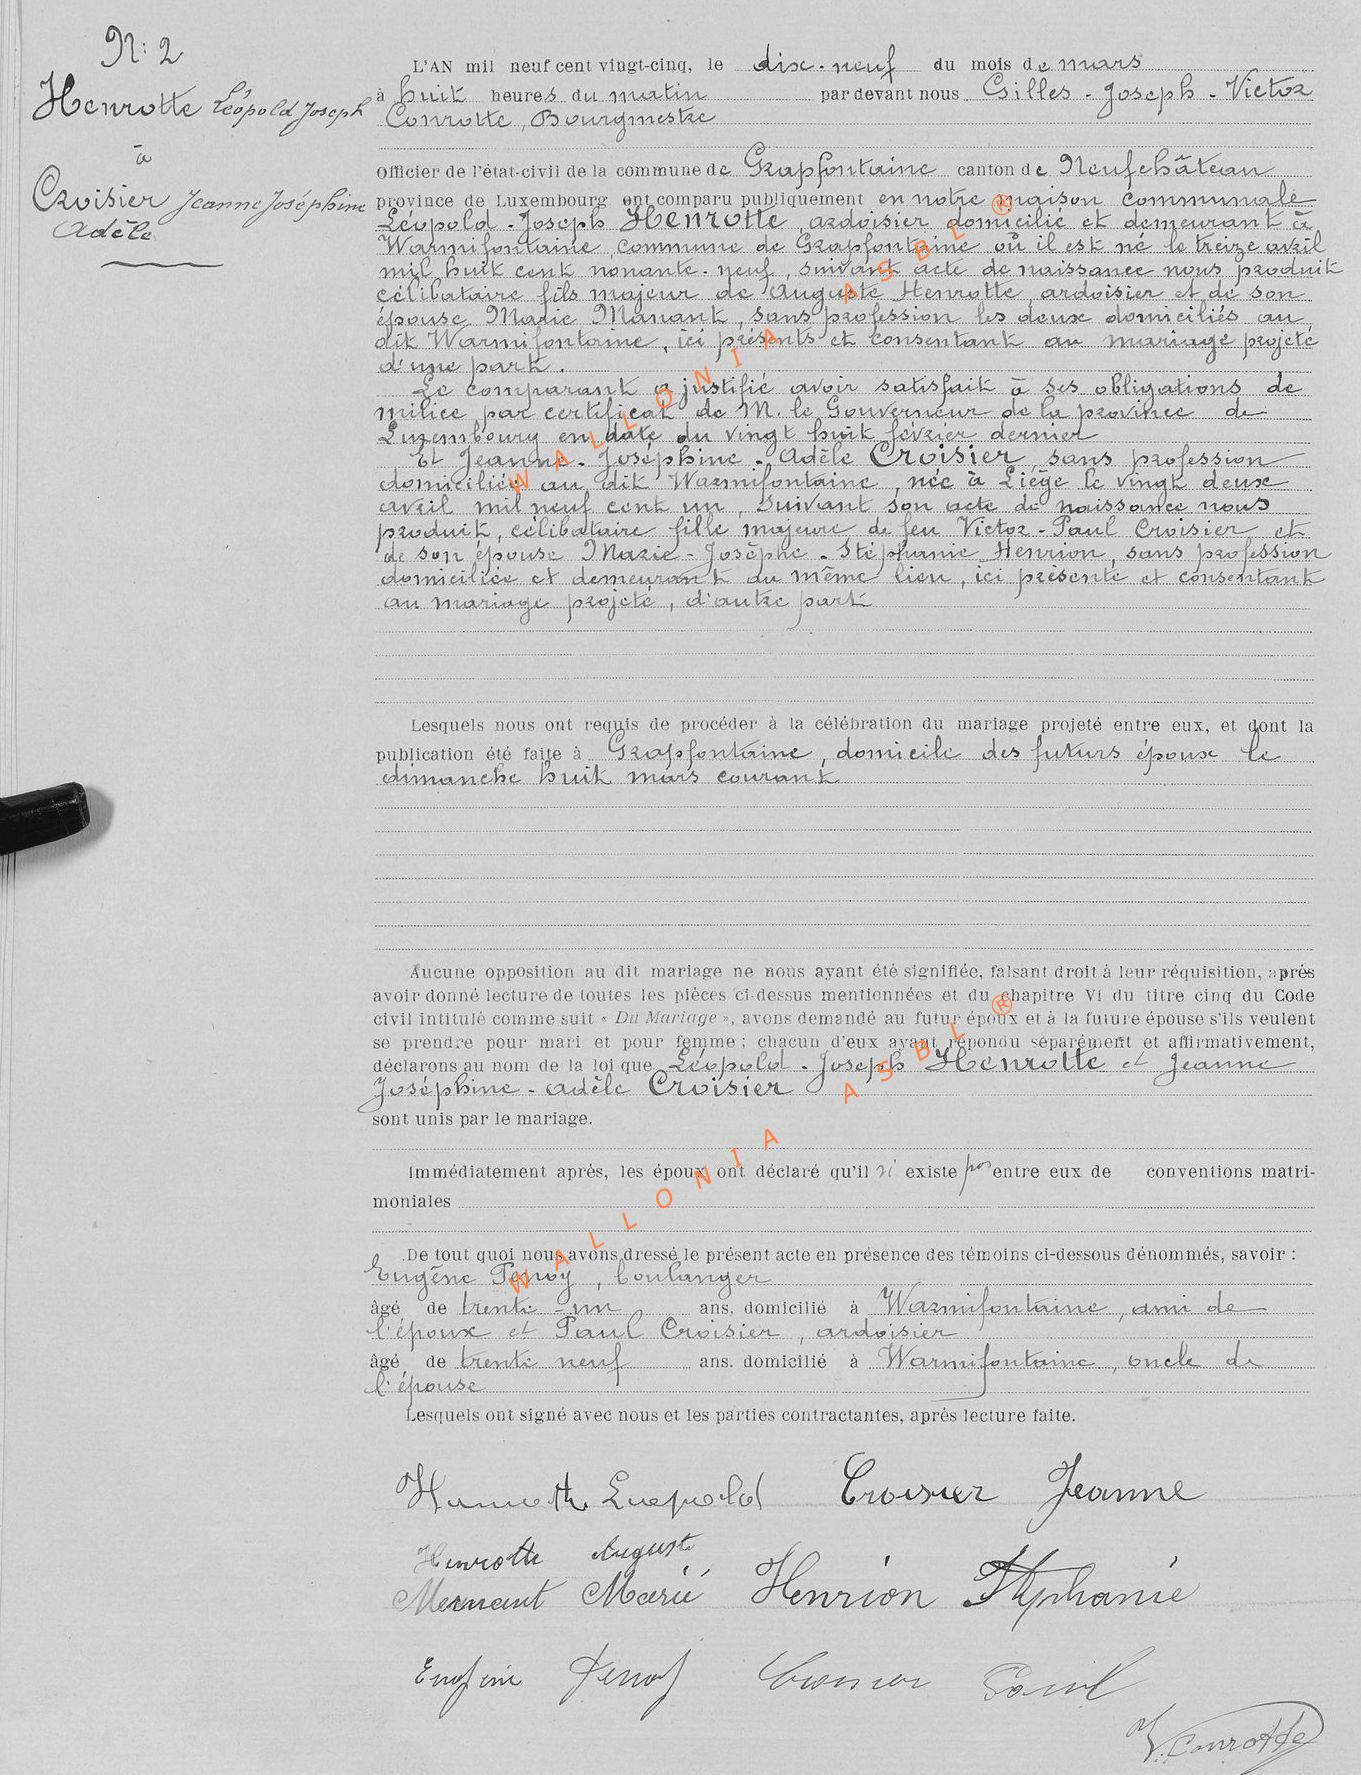 N: 2
Henrotte Léopold Joseph
à
Croisier Jeanne Joséphine
Adèle
L'AN mil neuf cent vingt-cinq, le dix-neuf du mois de mars
à huit heures du matin par devant nous Gilles-Joseph-Victor
Conrotte, Bourgmestre
officier de l'état-civil de la commune de Grapfontaine canton de Neufchâteau
province de Luxembourg ont comparu publiquement en notre maison communale
Léopold-Joseph Henrotte, ardoisier domicilié et demeurant à
Warmifontaine, commune de Grapfontaine où il est né le treize avril
mil huit cent nonante-neuf, suivant acte de naissance nous produit
célibataire fils majeur de Auguste Henrotte ardoisier et de son
épouse Marie Manant, sans profession les deux domiciliés au
dit Warmifontaine, ici présents et consentant au mariage projeté
d'une part.
Le comparant a justifié avoir satisfait à ses obligations de
milice par certificat de M. le Gouverneur de la province de
Luxembourg en date du vingt huit février dernier
Et Jeanne-Joséphine-Adèle Croisier, sans profession
domiciliée au dit Warmifontaine, née à Liège le vingt deux
avril mil neuf cent un, suivant son acte de naissance nous
produit, célibataire fille majeure de feu Victor-Paul Croisier et
de son épouse Marie-Josèphe-Stéphanie Henrion, sans profession
domiciliée et demeurant au même lieu, ici présente et consentant
au mariage projeté, d'autre part
Lesquels nous ont requis de procéder à la célébration du mariage projeté entre eux, et dont la
publication été faite à Grapfontaine, domicile des futurs époux le
dimanche huit mars courant
Aucune opposition au dit mariage ne nous ayant été signifiée, faisant droit à leur réquisition, après
avoir donné lecture de toutes les pièces ci-dessus mentionnées et du chapitre VI du titre cinq du Code
civil intitulé comme suit « Du Mariage », avons demandé au futur époux et à la future épouse s'ils veulent
se prendre pour mari et pour femme ; chacun d'eux ayant répondu séparément et affirmativement,
déclarons au nom de la loi que Léopold-Joseph Henrotte et Jeanne
Joséphine-Adèle Croisier
sont unis par le mariage.
Immédiatement après, les époux ont déclaré qu'il n' existe pas entre eux de conventions matri-
moniales
De tout quoi nous avons dressé le présent acte en présence des témoins ci-dessous dénommés, savoir :
Eugène Penoy, boulanger
âgé de trente-un ans, domicilié à Warmifontaine, ami de
l'époux et Paul Croisier, ardoisier
âgé de trente neuf ans. domicilié à Warmifontaine, oncle de
l'épouse
Lesquels ont signé avec nous et les parties contractantes, après lecture faite.
Henrotte Leopold Croisier Jeanne
Henrotte Auguste
Manant Marie Henrion Stéphanie
Eugène Penoy Croisier Paul
V. Conrotte
WALLONIA ASBL ®
WALLONIA ASBL ®